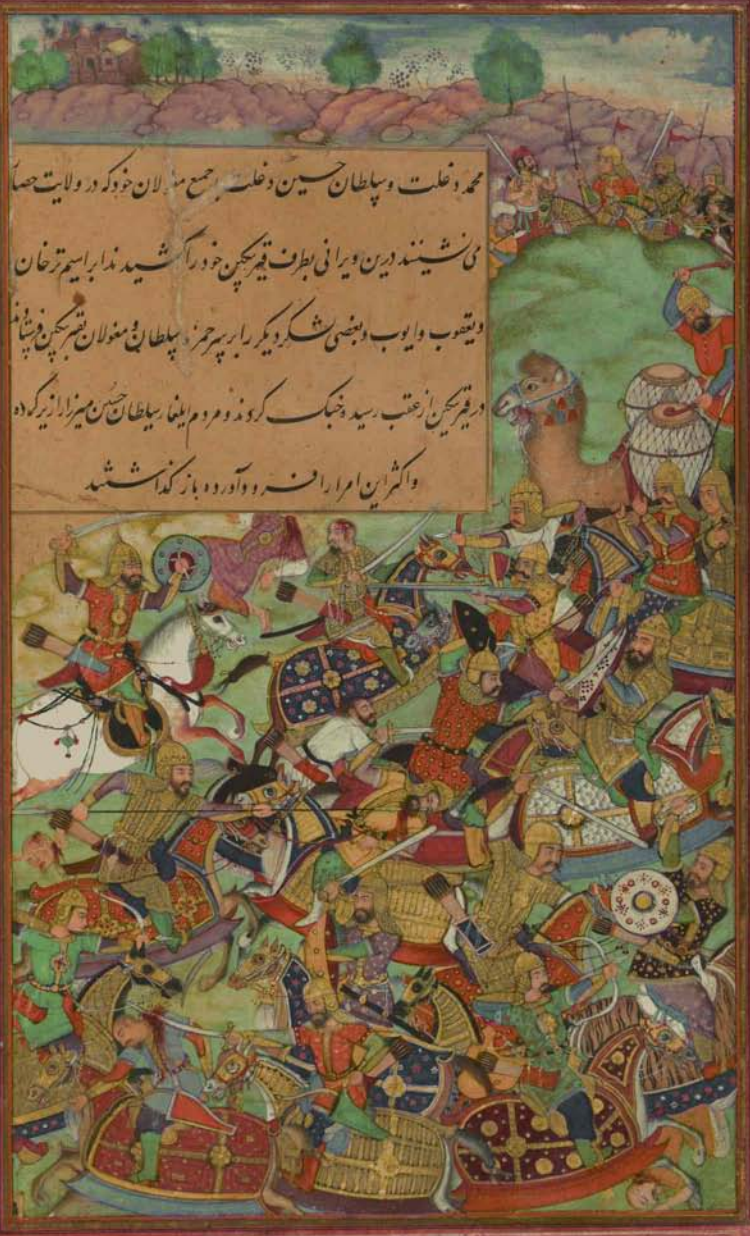 محمد دغلت و سلطان حسین دغلت جمع مغولان خود که در ولایت حصار
می نشینند درین ویرانی بطرف قیر تکین خود را کشیدند ابراهیم ترخان
و یعقوب و ایوب و بعضی لشکر دیگر را بر سر حمزه سلطان و مغولان بقیر تکین فرستادند
در قیر تکین از عقب رسیده جنک کردند و مردم ایلغار سلطان حسین میرزا را زیر کرده
و اکثر این امرا را فرود آورده باز گذاشتند